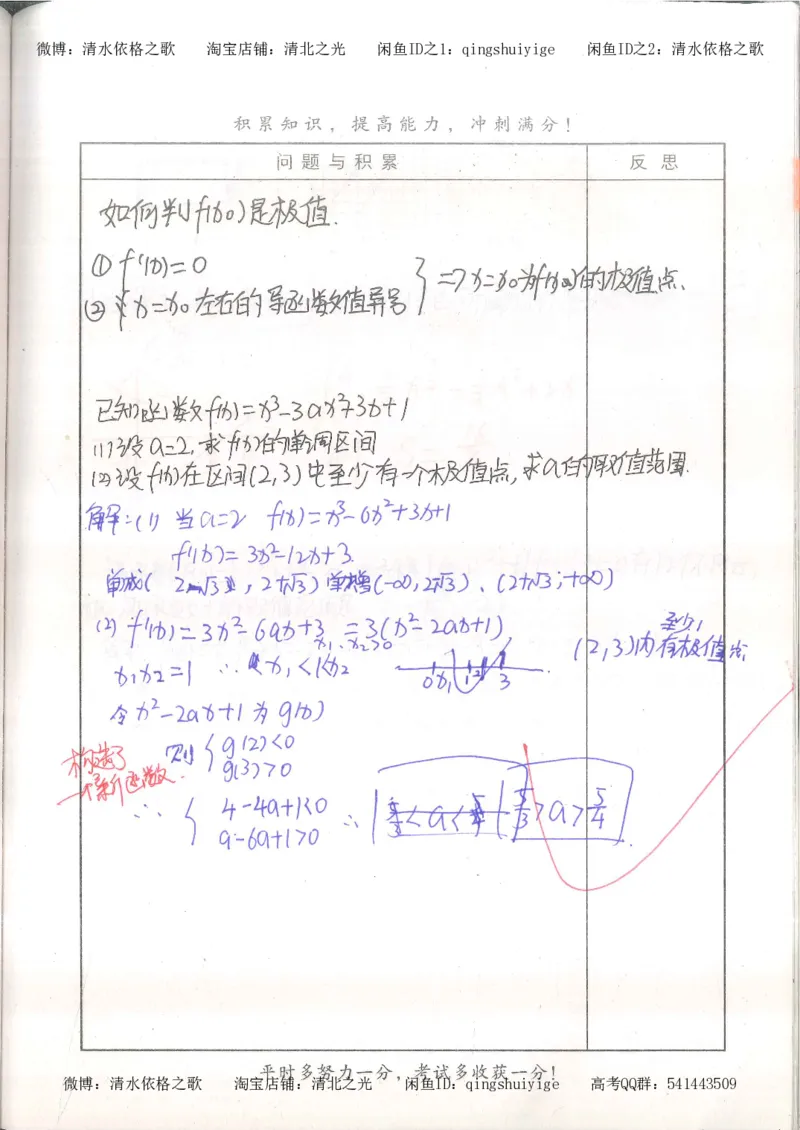 微博：清水依格之歌 淘宝店铺：清北之光 闲鱼ID之1：qingshuiyige 闲鱼ID之2：清水依格之歌
积累知识，提高能力，冲刺满分！
问题与积累 反思
如何判f(x0)是极值.
①f'(x)=0
②x=x0左右的导函数值异号 } =>x=x0为f(x)的极值点.
已知函数f(x)=x³-3ax²+3x+1
(1)设a=2,求f(x)的单调区间
(2)设f(x)在区间(2,3)中至少有一个极值点,求a的取值范围.
解:(1) 当a=2 f(x)=x³-6x²+3x+1
f'(x)=3x²-12x+3
单减(2-√3, 2+√3) 单增(-∞,2-√3)、(2+√3,+∞)
(2) f'(x)=3x²-6ax+3 =3(x²-2ax+1)
x1、x2>0
至少1
(2,3)内有极值点
x1x2=1 ∴ x1<1<x2
0 x1 1 2 3
令x²-2ax+1为g(x)
构造了一个新函数.
则{ g(2)<0
g(3)>0
∴ { 4-4a+1<0
9-6a+1>0 ∴ 5/3>a>5/4
平时多努力一分，考试多收获一分！
微博：清水依格之歌 淘宝店铺：清北之光 闲鱼ID：qingshuiyige 高考QQ群：541443509